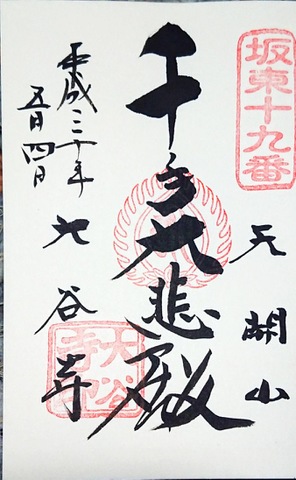 坂東十九番
天開山
千手大悲殿
大谷寺
大谷寺
平成三十年
五月四日